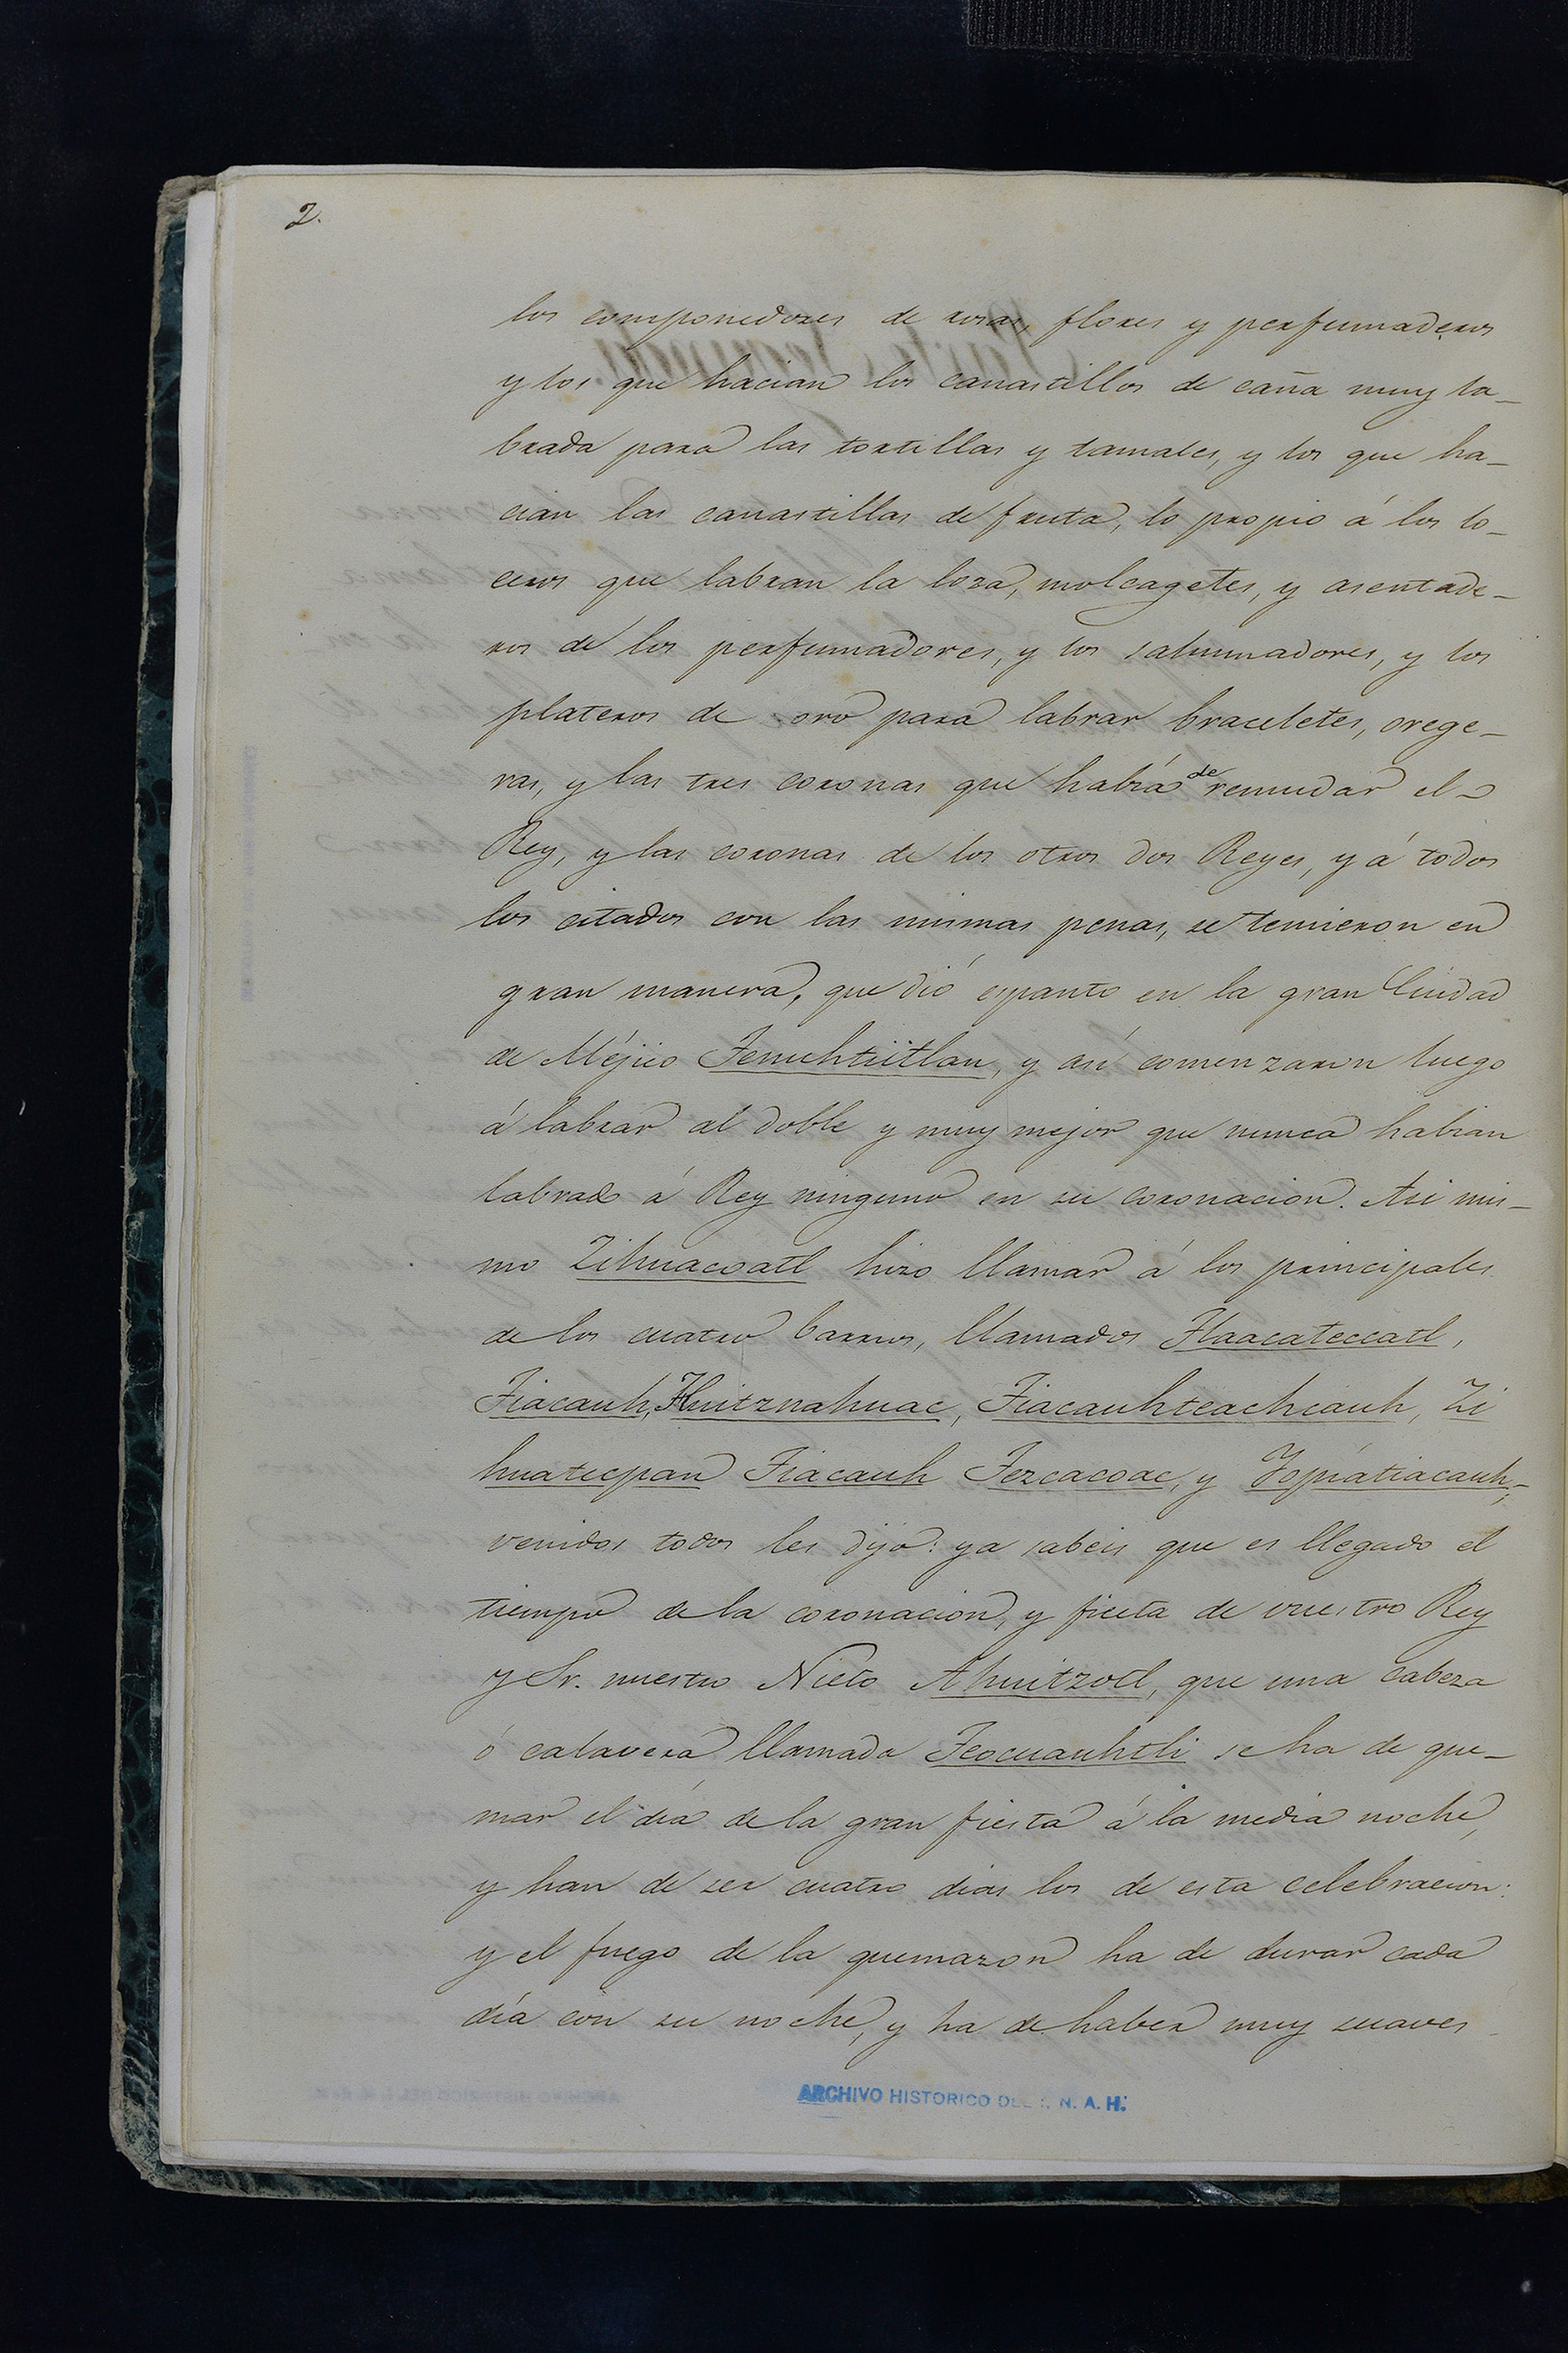 2.
los componedores de rosas, flores y perfumaderos
y los que hacian los canastillos de caña muy la-
brada para las tortillas y tamales, y los que ha-
cian las canastillas de fruta, lo propio á los lo-
ceros que labran la loza, molcagetes, y asentade-
ros de los perfumadores, y los sahumadores, y los
plateros de oro para labrar braceletes, orege-
ras, y las tres coronas que habia de remudar el
Rey, y las coronas de los otros dos Reyes, y á todos
los citados con las mismas penas, se temieron en
gran manera, que dió espanto en la gran Ciudad
de Méjico Tenuchtiitlan, y asi comenzaron luego
á labrar al doble y muy mejor que nunca habian
labrado á Rey ninguno en su coronacion. Asi mis-
mo Zihuacoatl hizo llamar á los principales
de los cuatro barrios, llamados Tlaacateccatl,
Tiacauh, Huitznahuac, Tiacauhteachcauh, Zi
huatecpan Tiacauh Tezcacoac, y Yopicatiacauh;
venidos todos les dijo: ya sabeis que es llegado el
tiempo de la coronacion, y fiesta de vuestro Rey
y Sr. nuestro Nieto Ahuitzotl, que una cabeza
ó calavera llamada Teocuauhtli se ha de que-
mar el dia de la gran fiesta á la media noche,
y han de ser cuatro dias los de esta celebracion:
y el fuego de la quemazon ha de durar cada
día con su noche, y ha de haber muy suaves
ARCHIVO HISTORICO DEL I. N. A. H.